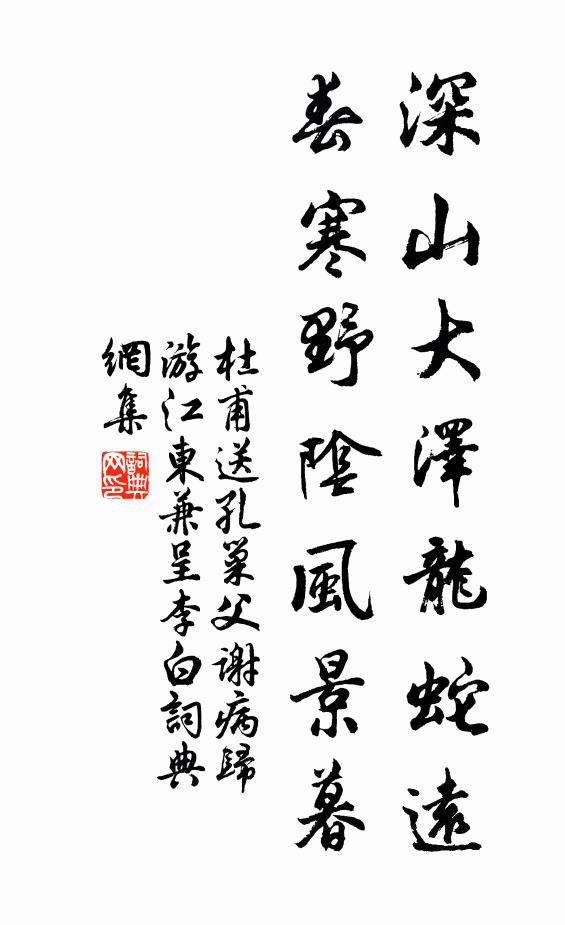 深山大澤龍蛇遠
春寒野陰風景暮
杜甫送孔巢父謝病歸
游江東兼呈李白詞典
網集
詞典網印